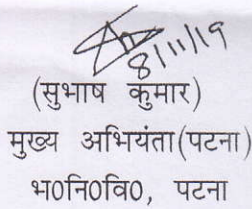 8/11/19
(सुभाष कुमार)
मुख्य अभियंता(पटना)
भ0नि0वि0, पटना